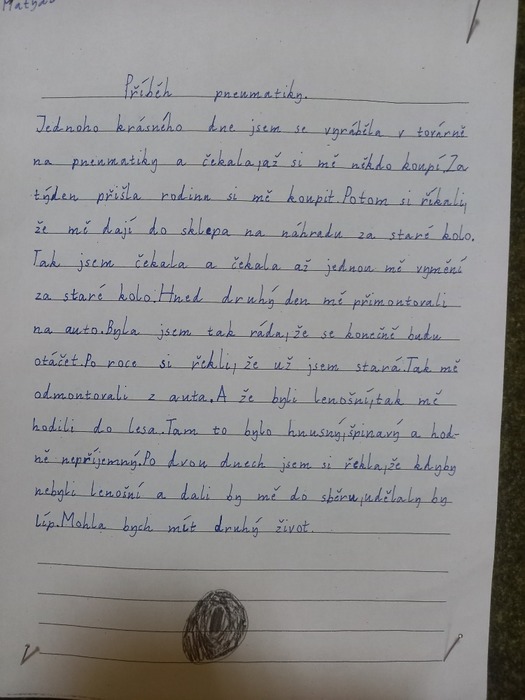 Matyáš
Příběh pneumatiky.
Jednoho krásného dne jsem se vyráběla v továrně
na pneumatiky a čekala,až si mě někdo koupí.Za
týden přišla rodina si mě koupit.Potom si říkali,
že mě dají do sklepa na náhradu za staré kolo.
Tak jsem čekala a čekala až jednou mě vymění
za staré kolo.Hned druhý den mě přimontovali
na auto.Byla jsem tak ráda,že se konečně budu
otáčet.Po roce si řekli, že už jsem stará.Tak mě
odmontovali z auta.A že byli lenošní,tak mě
hodili do lesa.Tam to bylo hnusný,špinavý a hod-
ně nepříjemný.Po dvou dnech jsem si řekla,že kdyby
nebyli lenošní a dali by mě do sběru,udělaly by
líp.Mohla bych mít druhý život.